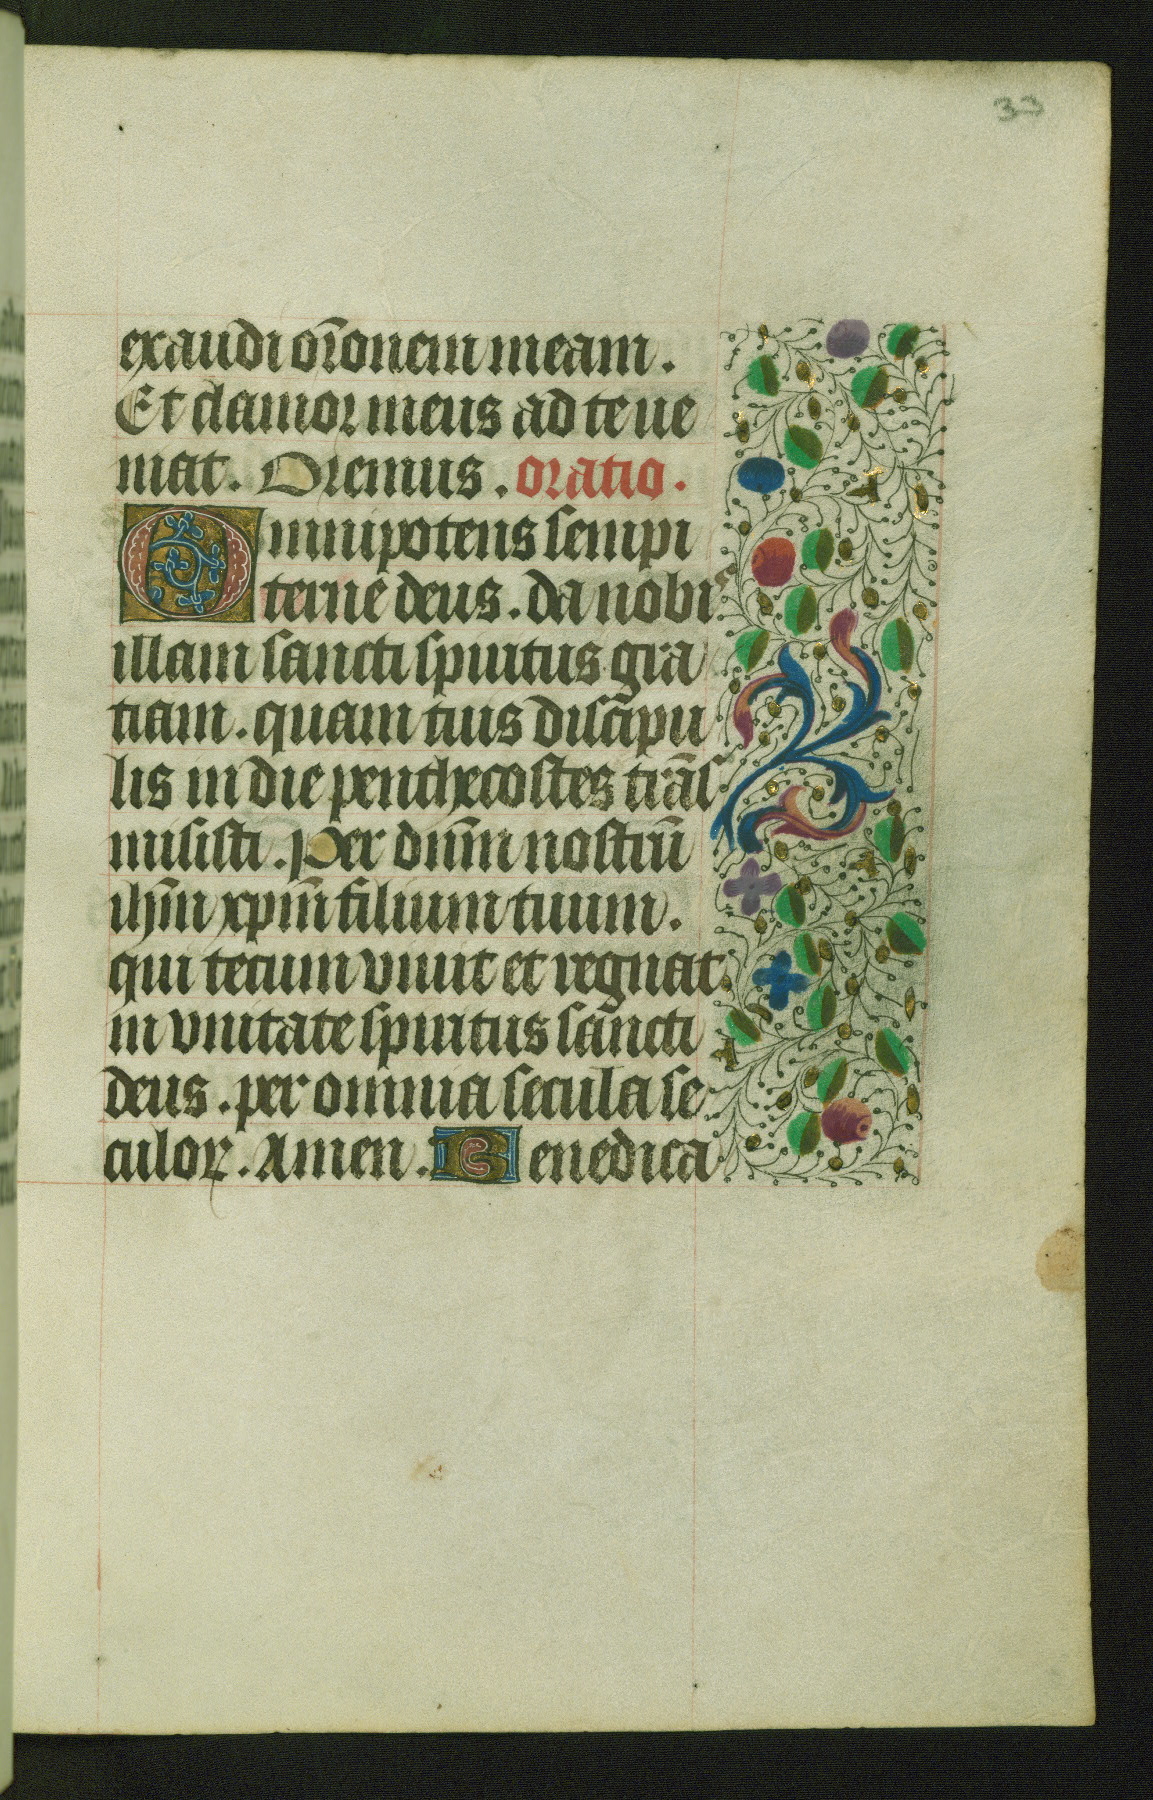 33
exaudi or̄onem meam.
Et clamor meus ad te ue
niat. Oremus. oratio.
Omnipotens sempi
terne deus. da nobis
illam sancti spiritus gra
tiam. quam tuis discipu
lis in die penthecostes trāſ
misisti. Per dn̄m nostrū
ihm̄ xpm̄ filium tuum.
qui tecum viuit et regnat
in vnitate spiritus sancti
deus. per omnia secula se
culoꝝ. Amen. Benedica